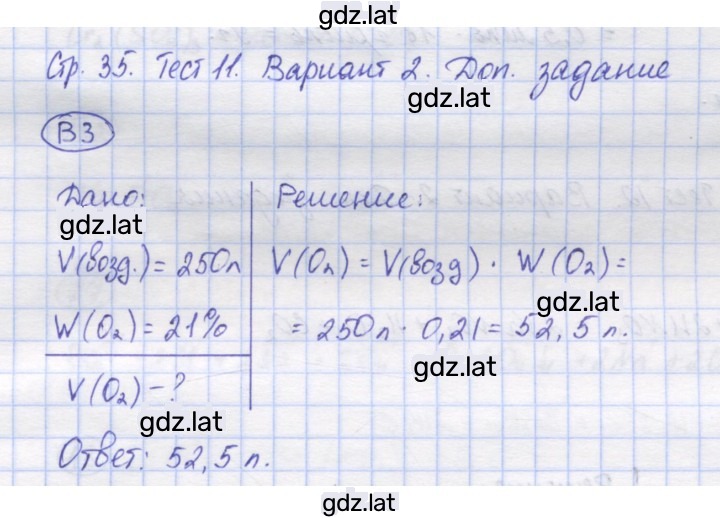 gdz.lat
Стр. 35. Тест 11. Вариант 2. Доп. задание
gdz.lat
В3
Дано:
gdz.lat
V(возд.) = 250л
W(O₂) = 21%
V(O₂) – ?
gdz.lat
Решение:
V(O₂) = V(возд) · W(O₂) =
gdz.lat
= 250л · 0,21 = 52,5 л.
gdz.lat
Ответ: 52,5 л.
gdz.lat